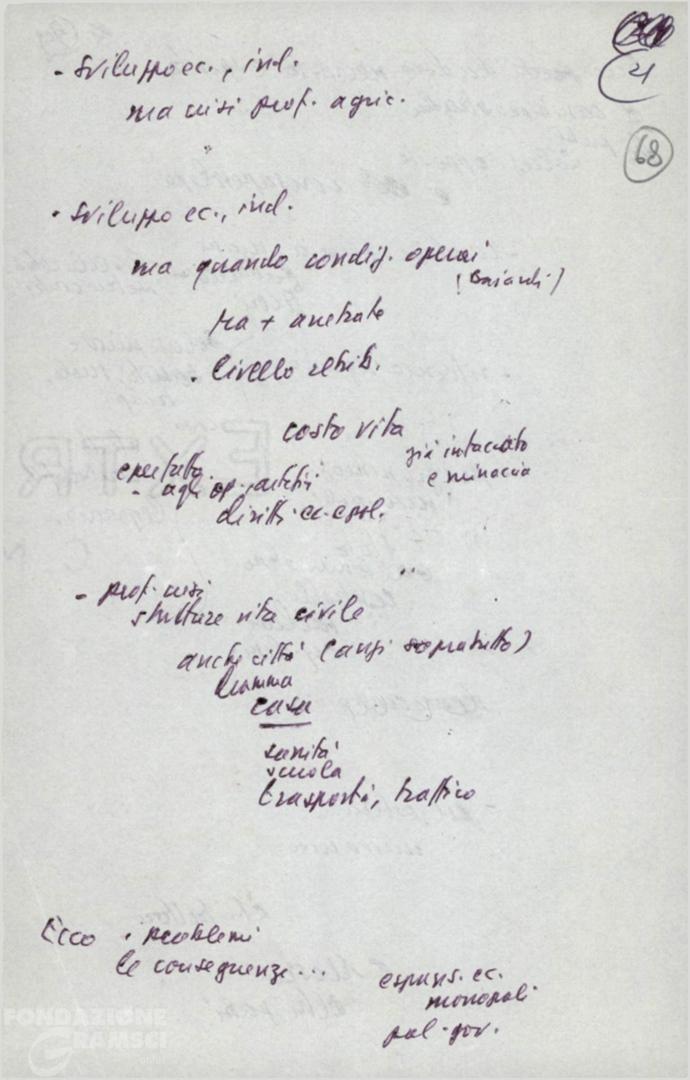 4
68
- sviluppo ec., ind.
ma crisi prof. agric.
- sviluppo ec., ind.
ma quando condiz. operai
ma + arretrate
. livello retrib.
costo vita
già intaccato
e minaccia
- agli op.
diritti
- prof. crisi
strutture vita civile
anche città (anzi sopratutto)
dramma
casa
sanità
scuola
trasporti, traffico
Ecco . problemi
le conseguenze...
espans. ec.
monopoli
pol. gov.
FONDAZIONE
GRAMSCI